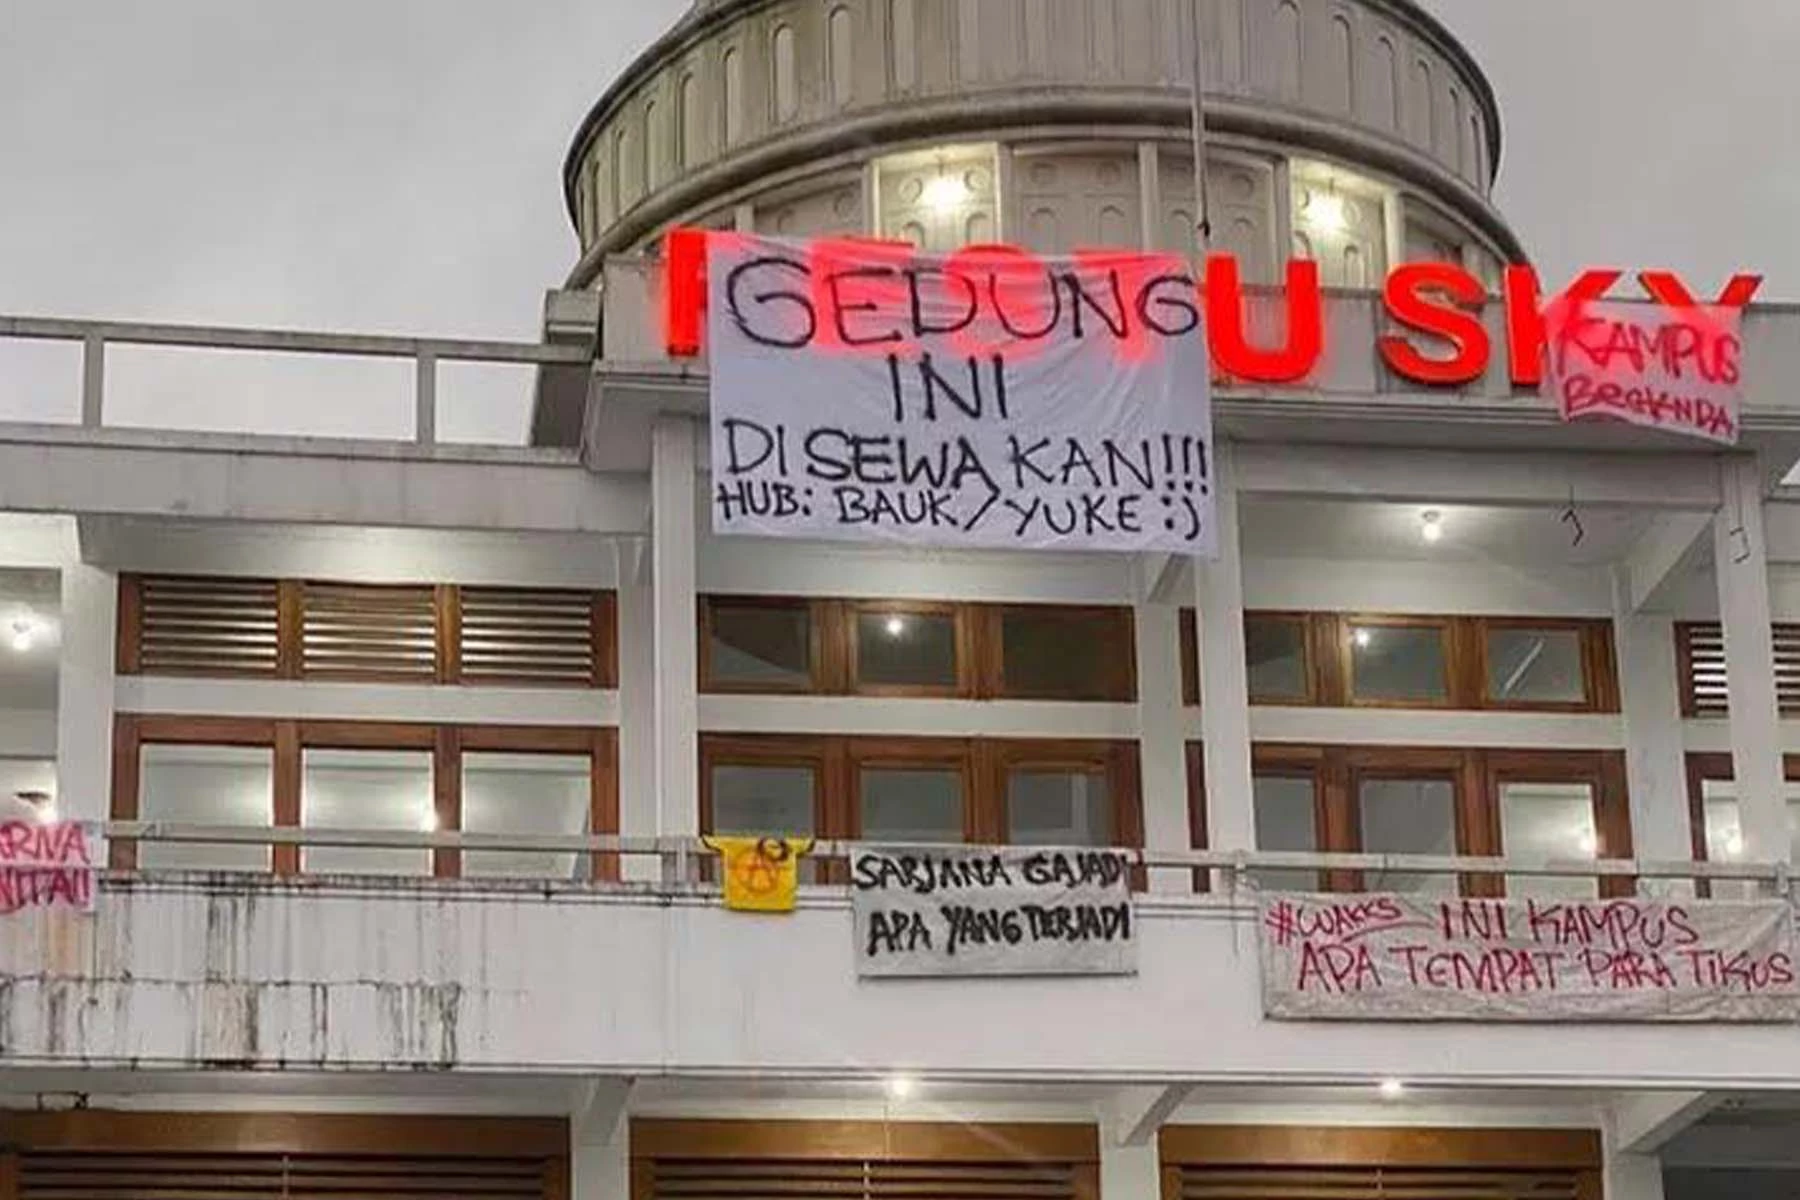 GEDUNG
INI
DISEWAKAN!!!
HUB: BAUK/YUKE :)
U SKY
KAMPUS
BERCANDA
SARJANA GAJADI
APA YANG TERJADI
#WAKKS INI KAMPUS
APA TEMPAT PARA TIKUS